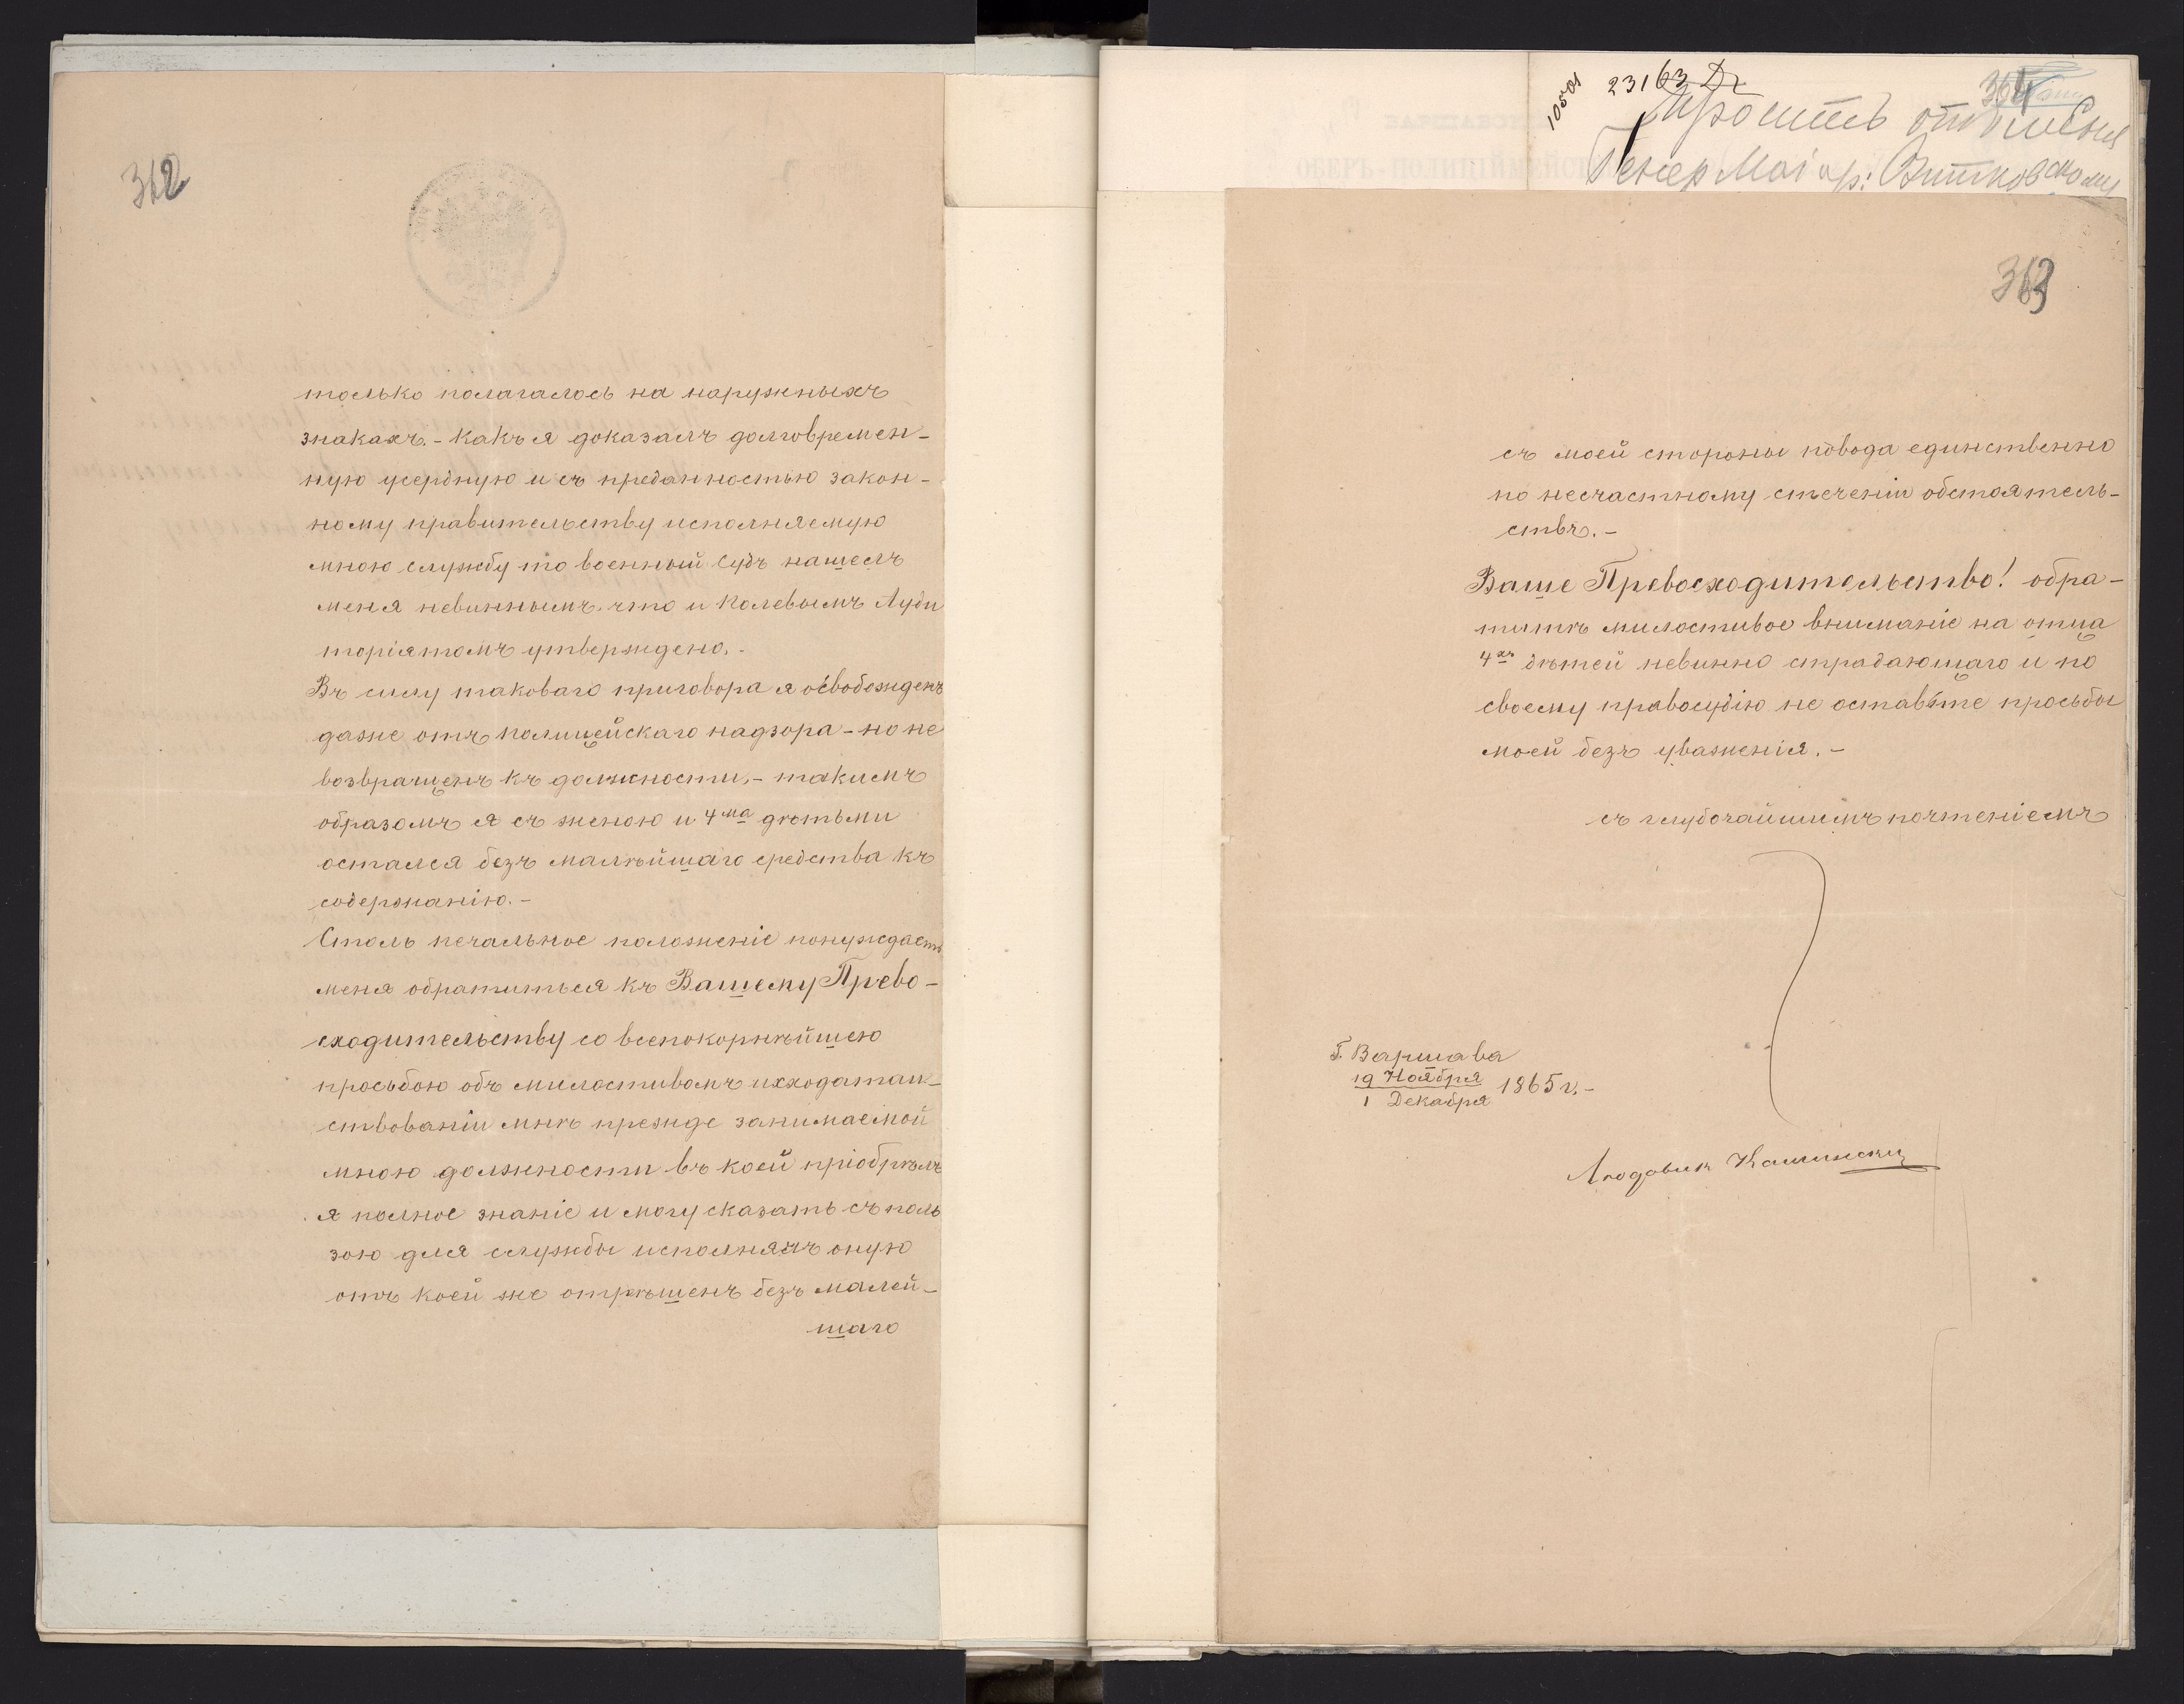 362
только полагалось на наружныхъ
знакахъ. - какъ я доказалъ долговремен-
ную усердную и съ преданностью закон-
ному правительству исполняемую
мною службу то военный Судъ нашелъ
меня невиннымъ. что и Полевымъ Ауди
торіятомъ утверждено. -
Въ силу таковаго приговора я освобожденъ
даже отъ полицейскаго надзора - но не
возвращенъ къ должности, - такимъ
образомъ я съ женою и 4ма дѣтьми
остался безъ малѣйшаго средства къ
содержанію. -
Столь печальное положеніе понуждаетъ
меня обратиться къ Вашему Прево-
сходительству со всепокорнѣйшею
просьбою объ милостивомъ исходатаи-
ствованіи мнѣ прежде занимаемой
мною должности въ коей пріобрѣлъ
я полное знаніе и могу сказать съ поль
зою для службы исполнялъ оную
отъ коей же отрѣшенъ безъ малей-
шаго
10501
23163
364
Просить
Генер Маіор: Витковскому
363
съ моей стороны повода единственно
по несчастному стеченіи обстоятель-
ствъ. -
Ваше Превосходительство! обра-
тить милостивое вниманіе на отца
4хъ дѣтей невинно страдающаго и по
своему правосудію не оставьте просьбы
моей безъ уваженія. -
съ глубочайшимъ почтеніемъ
Г. Варшава
19 Ноября
1 Декабря 1865 г. -
Людовик